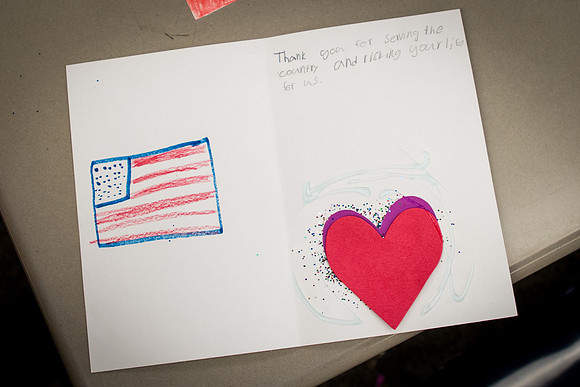 Thank you for serving the
country and risking your life
for us.